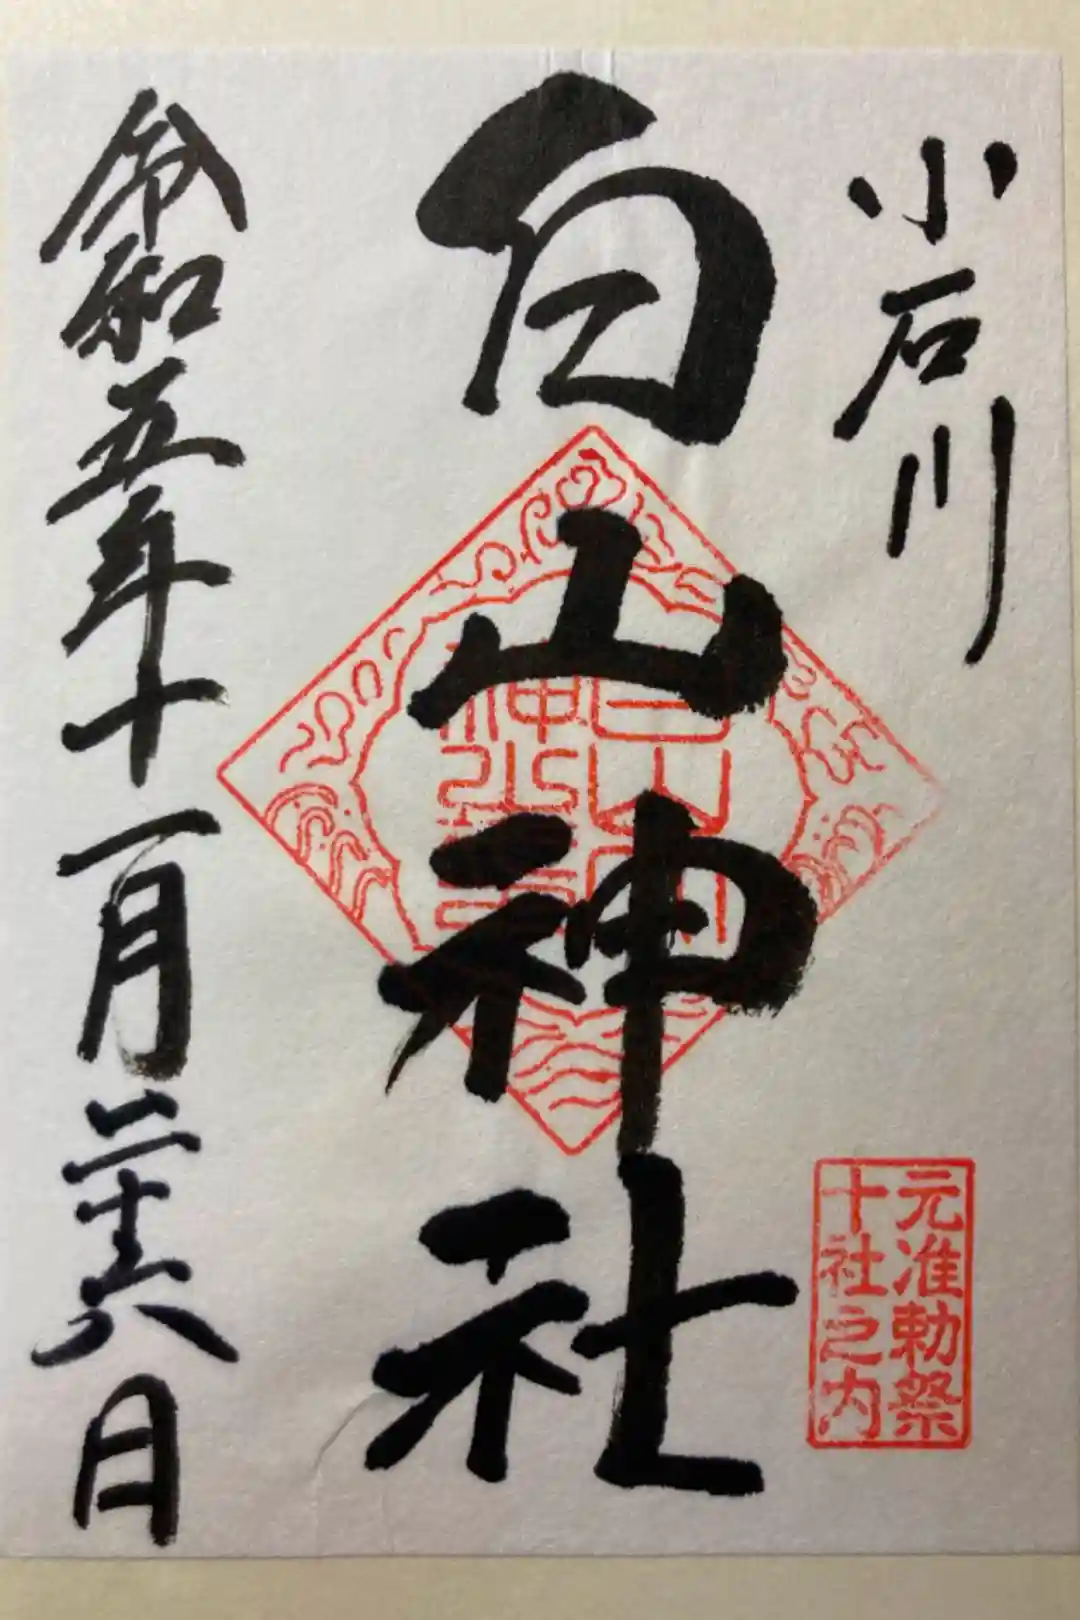 小石川
白山神社
元准勅祭
十社之内
令和五年十一月二十六日